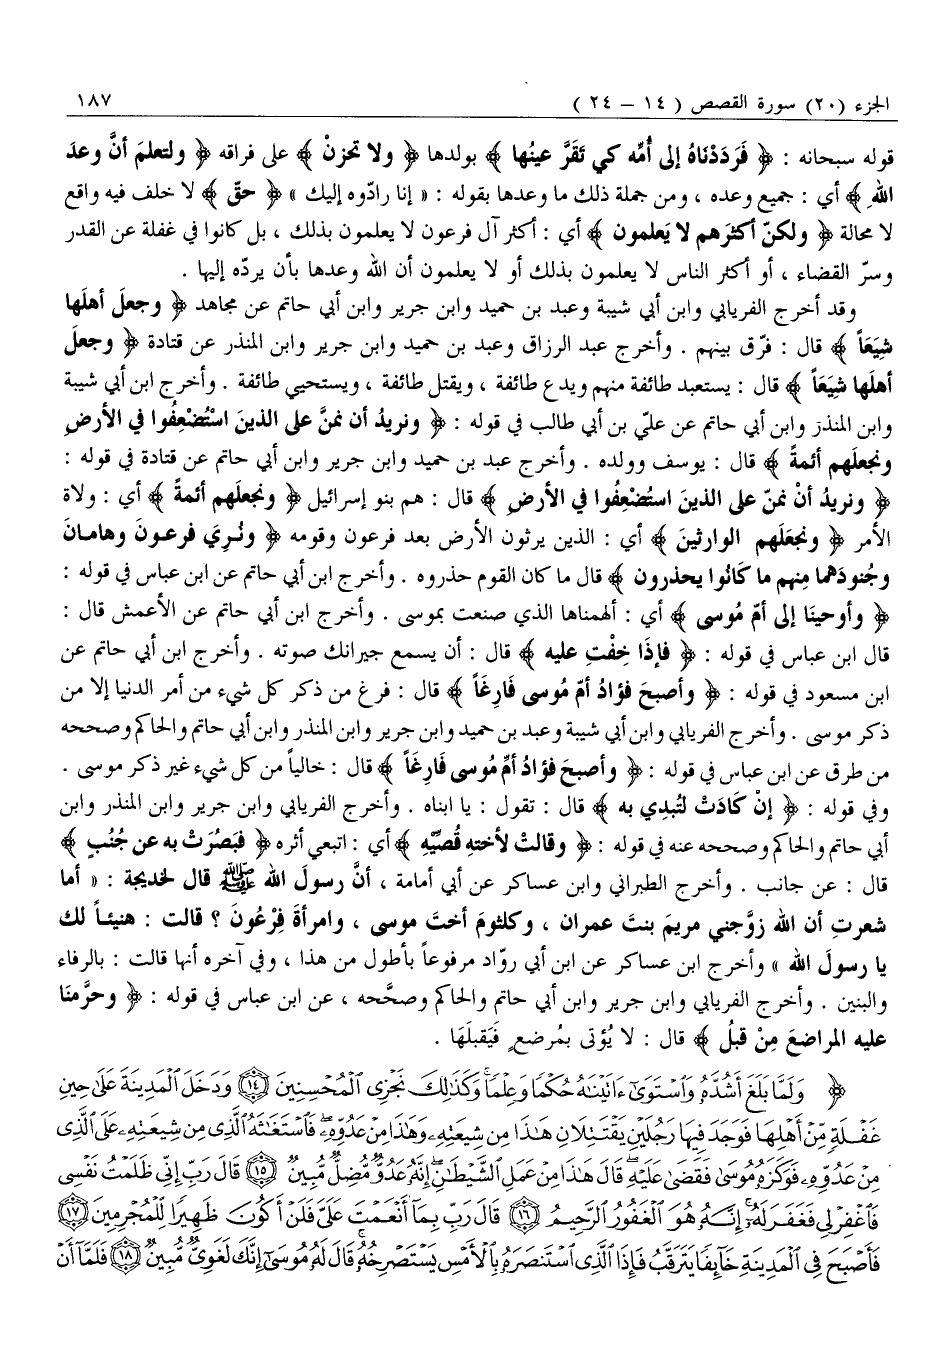 الجزء (٢٠) سورة القصص ( ١٤ – ٢٤ ) ١٨٧
قوله سبحانه : ﴿ فَرَدَدْنَاهُ إلى أُمِّه كي تَقَرَّ عينُها ﴾ بولدها ﴿ ولا تحزنْ ﴾ على فراقه ﴿ ولتعلمَ أنَّ وعدَ
اللهِ ﴾ أي : جميع وعده ، ومن جملة ذلك ما وعدها بقوله : « إنا رادّوه إليك » ﴿ حقّ ﴾ لا خلف فيه واقع
لا محالة ﴿ ولكنّ أكثرَهم لا يَعلمون ﴾ أي : أكثر آل فرعون لا يعلمون بذلك ، بل كانوا في غفلة عن القدر
وسرّ القضاء ، أو أكثر الناس لا يعلمون بذلك أو لا يعلمون أن الله وعدها بأن يردّه إليها .
وقد أخرج الفريابي وابن أبي شيبة وعبد بن حميد وابن جرير وابن أبي حاتم عن مجاهد ﴿ وجعلَ أهلَها
شِيَعَاً ﴾ قال : فرّق بينهم . وأخرج عبد الرزاق وعبد بن حميد وابن جرير وابن المنذر عن قتادة ﴿ وجعلَ
أهلَها شِيَعَاً ﴾ قال : يستعبد طائفة منهم ويدع طائفة ، ويقتل طائفة ، ويستحيي طائفة . وأخرج ابن أبي شيبة
وابن المنذر وابن أبي حاتم عن عليّ بن أبي طالب في قوله : ﴿ ونريدُ أن نمنَّ على الذينَ اسْتُضْعِفُوا في الأرضِ
ونجعلَهم أئمةً ﴾ قال : يوسف وولده . وأخرج عبد بن حميد وابن جرير وابن أبي حاتم عن قتادة في قوله :
﴿ ونريدُ أنْ نمنّ على الذينَ استُضْعِفُوا في الأرضِ ﴾ قال : هم بنو إسرائيل ﴿ ونجعلَهم أئمةً ﴾ أي : ولاة
الأمر ﴿ ونجعَلَهم الوارثينَ ﴾ أي : الذين يرثون الأرض بعد فرعون وقومه ﴿ ونُرِيَ فرعونَ وهامانَ
وجُنودَهما مِنهم ما كَانُوا يحذرون ﴾ قال ما كان القوم حذروه . وأخرج ابن أبي حاتم عن ابن عباس في قوله :
﴿ وأوحينَا إلى أمّ مُوسى ﴾ أي : ألهمناها الذي صنعت بموسى . وأخرج ابن أبي حاتم عن الأعمش قال :
قال ابن عباس في قوله : ﴿ فإذَا خِفْتِ عليه ﴾ قال : أن يسمع جيرانك صوته . وأخرج ابن أبي حاتم عن
ابن مسعود في قوله : ﴿ وأصبحَ فؤادُ أمّ مُوسى فَارِغَاً ﴾ قال : فرغ من ذكر كل شيء من أمر الدنيا إلا من
ذكر موسى . وأخرج الفريابي وابن أبي شيبة وعبد بن حميد وابن جرير وابن المنذر وابن أبي حاتم والحاكم وصححه
من طرق عن ابن عباس في قوله : ﴿ وأصبحَ فؤادُ أمِّ مُوسى فَارِغَاً ﴾ قال : خالياً من كل شيء غير ذكر موسى .
وفي قوله : ﴿ إنْ كَادَتْ لتُبدِي به ﴾ قال : تقول : يا ابناه . وأخرج الفريابي وابن جرير وابن المنذر وابن
أبي حاتم والحاكم وصححه عنه في قوله : ﴿ وقالتْ لأختهِ قُصِّيِه ﴾ أي : اتبعي أثره ﴿ فبَصُرَتْ به عن جُنُبٍ ﴾
قال : عن جانب . وأخرج الطبراني وابن عساكر عن أبي أمامة ، أنَّ رسولَ الله ﷺ قال لخديجة : « أما
شعرتِ أن الله زوَّجني مريمَ بنتَ عمران ، وكلثومَ أختَ موسى ، وامرأةَ فِرْعُونَ ؟ قالت : هنيئاً لك
يا رسولَ الله » وأخرج ابن عساكر عن ابن أبي روّاد مرفوعاً بأطول من هذا ، وفي آخره أنها قالت : بالرفاء
والبنين . وأخرج الفريابي وابن جرير وابن أبي حاتم والحاكم وصحَّحه ، عن ابن عباس في قوله : ﴿ وحرَّمنَا
عليه المراضعَ مِنْ قبلُ ﴾ قال : لا يُؤتى بمُرضعٍ فَيَقبلَهَا .
﴿ وَلَمَّا بَلَغَ أَشُدَّهُ وَٱسْتَوَىٰٓ ءَاتَيْنَٰهُ حُكْمًا وَعِلْمًا ۚ وَكَذَٰلِكَ نَجْزِى ٱلْمُحْسِنِينَ ﴿١٤﴾ وَدَخَلَ ٱلْمَدِينَةَ عَلَىٰ حِينِ
غَفْلَةٍ مِّنْ أَهْلِهَا فَوَجَدَ فِيهَا رَجُلَيْنِ يَقْتَتِلَانِ هَٰذَا مِن شِيعَتِهِۦ وَهَٰذَا مِنْ عَدُوِّهِۦ ۖ فَٱسْتَغَٰثَهُ ٱلَّذِى مِن شِيعَتِهِۦ عَلَى ٱلَّذِى
مِنْ عَدُوِّهِۦ فَوَكَزَهُۥ مُوسَىٰ فَقَضَىٰ عَلَيْهِ ۖ قَالَ هَٰذَا مِنْ عَمَلِ ٱلشَّيْطَٰنِ ۖ إِنَّهُۥ عَدُوٌّ مُّضِلٌّ مُّبِينٌ ﴿١٥﴾ قَالَ رَبِّ إِنِّى ظَلَمْتُ نَفْسِى
فَٱغْفِرْ لِى فَغَفَرَ لَهُۥٓ ۚ إِنَّهُۥ هُوَ ٱلْغَفُورُ ٱلرَّحِيمُ ﴿١٦﴾ قَالَ رَبِّ بِمَآ أَنْعَمْتَ عَلَىَّ فَلَنْ أَكُونَ ظَهِيرًا لِّلْمُجْرِمِينَ ﴿١٧﴾
فَأَصْبَحَ فِى ٱلْمَدِينَةِ خَآئِفًا يَتَرَقَّبُ فَإِذَا ٱلَّذِى ٱسْتَنصَرَهُۥ بِٱلْأَمْسِ يَسْتَصْرِخُهُۥ ۚ قَالَ لَهُۥ مُوسَىٰٓ إِنَّكَ لَغَوِىٌّ مُّبِينٌ ﴿١٨﴾ فَلَمَّآ أَنْ